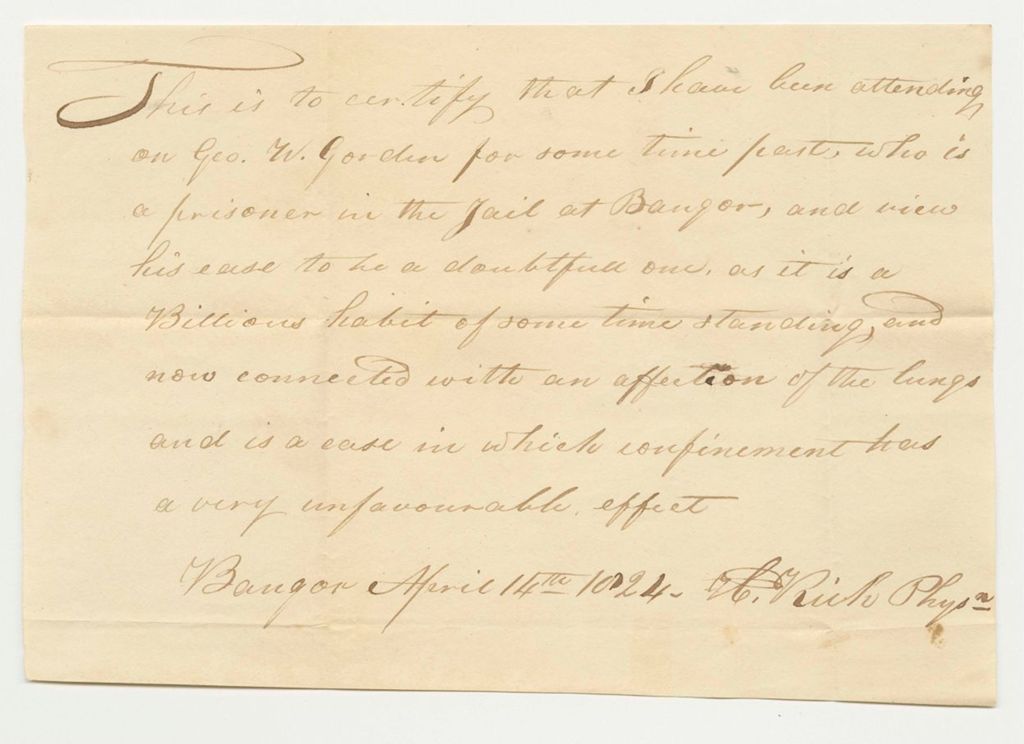 This is to certify that I have been attending
on Geo. W. Gordin for some time past, who is
a prisoner in the Jail at Bangor, and view
his case to be a doubtfull one, as it is a
Billious habit of some time standing, and
now connected with an affection of the lungs
and is a case in which confinement has
a very unfavourable effect
Bangor April 14th 1824 - H. Rich Physn